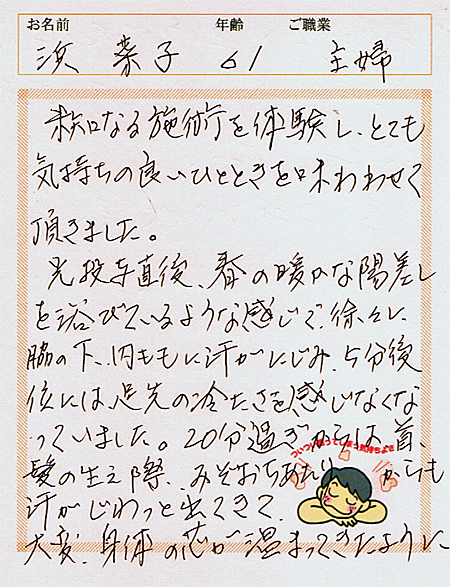 お名前 年齢 ご職業
浜 菜子 61 主婦
未知なる施術を体験し、とても
気持ちの良いひとときを味わわせて
頂きました。
光投与直後、春の暖かな陽差し
を浴びているような感じで、徐々に、
脇の下、内ももに汗がにじみ、5分後
位には、足先の冷たさを感じなくな
っていました。20分過ぎからは、首、
髪の生え際、みぞおちあたりからも
汗がじわっと出てきて、
大変、身体の芯が温まってきたように
ついつい眠ってしまう気持ちよさ